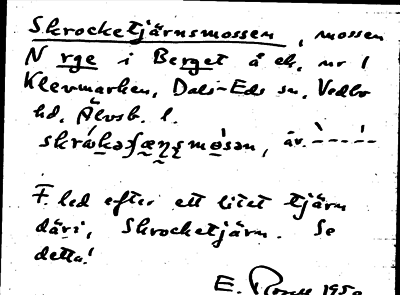 Skrocketjärnsmossen, mossen
N rge i Berget å ek. nr 1
Klevmarken, Dals-Eds sn, Vedbo
hd, Älvsb. l.
skrɷ̀kəʃæ̣ṇṣmɷ̀sən, äv.
F. led efter ett litet tjärn
däri, Skrocketjärn. Se
detta!
E. 1950